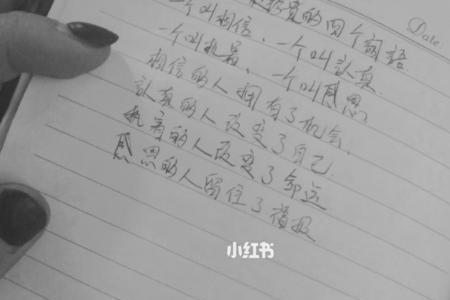 的四个词語
Date
一个叫相信、一个叫认真
一个叫执着、一个叫感恩
相信的人拥有了机会、
认真的人改变了自己
执着的人改变了命运
感恩的人留住了福报
小红书